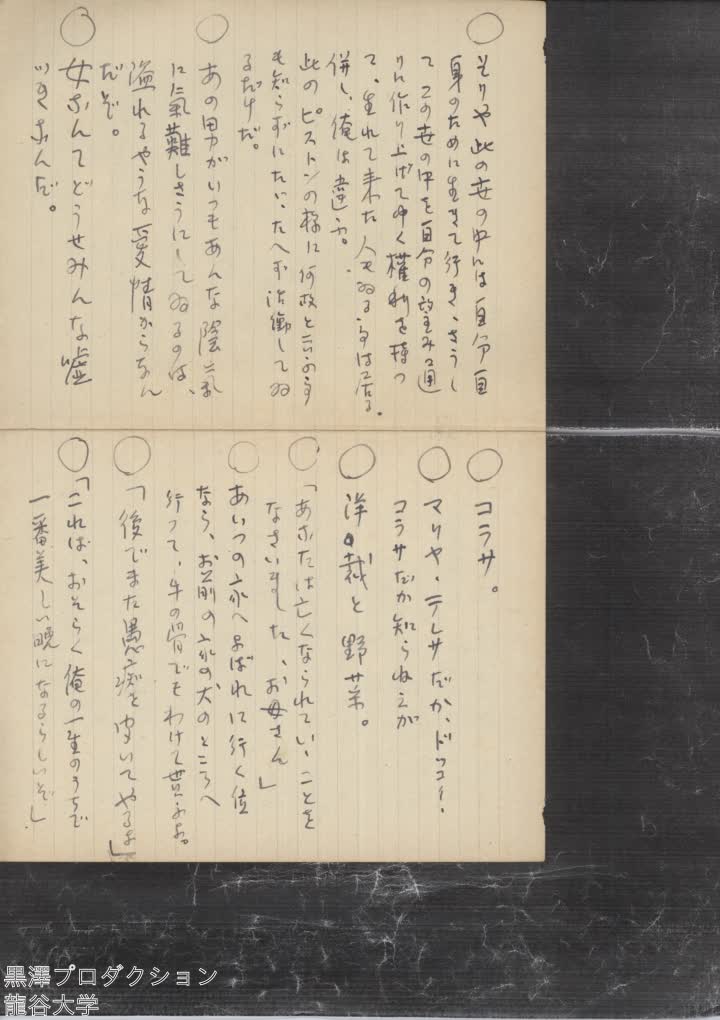 ○ そりや此の世の中には自分自
身のために生きて行き、さうし
て この世の中を自分の望み通
りに作り上げてゆく権利を持つ
て、生れて来た人もゐる事は居る。
併し、俺は違ふ。
此のピストンの様に何故と云ふ事
も知らずにたいたへず活動してゐ
るだけだ。
○ あの男がいつもあんな陰気
に気難しさうにしてゐるのは、
溢れるやうな愛情からなん
だぞ。
○ 女なんてどうせみんな嘘
つきなんだ。
○ コラサ。
○ マリヤ・テレサだか、ドッコイ・
コラサだか知らねえが
○ 洋裁と野菜。
○ 「あなたは亡くなられていゝことを
なさいました、お母さん」
○ あいつの家へよばれに行く位
なら、お前の家の犬のところへ
行つて、牛の骨でもわけて貰ふよ。
○ 「後でまた愚痴を聞いてやるよ」
○ 「これは、おそらく俺の一生のうちで
一番美しい晩になるらしいぞ」
黒澤プロダクション
龍谷大学